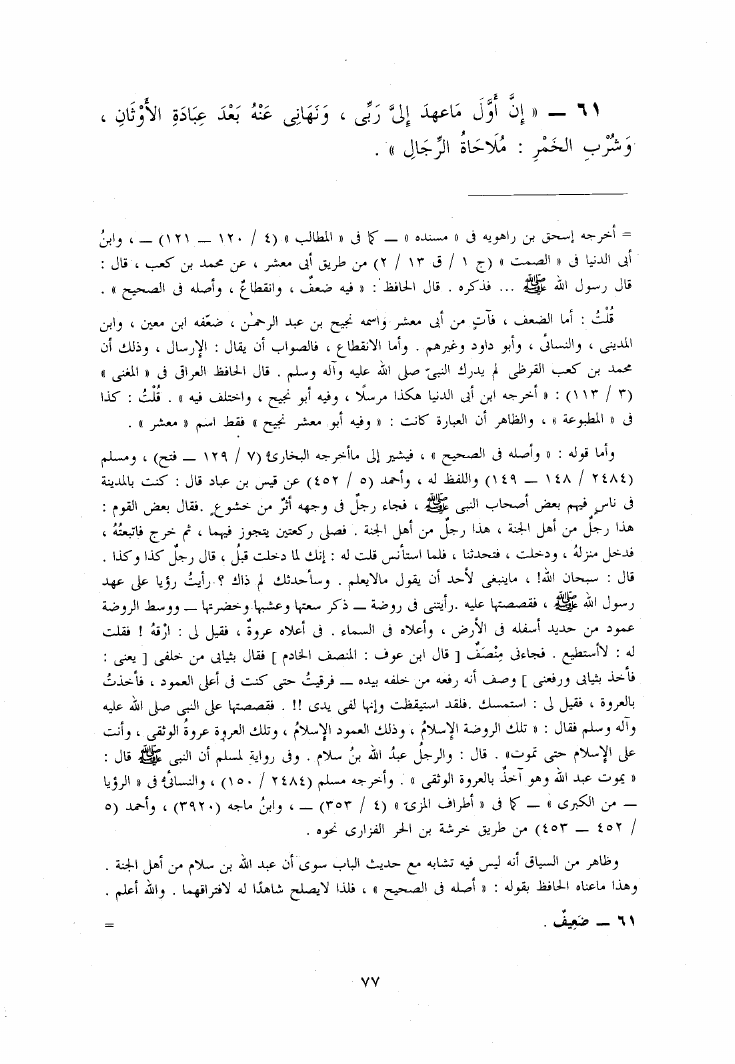 ٦١ ــ « إِنَّ أَوَّلَ مَاعهدَ إِلىَّ رَبِّى ، وَنَهَانِى عَنْهُ بَعْدَ عِبَادَةِ الأَوْثَانِ ،
وَشُرْبِ الخَمْرِ : مُلَاحَاةُ الرِّجَالِ » .
= أخرجه إسحق بن راهويه فى « مسنده » ــ كما فى « المطالب » (٤ / ١٢٠ ــ ١٢١) ــ ، وابنُ
أبى الدنيا فى « الصمت » (ج ١ / ق ١٣ / ٢) من طريق أبى معشر ، عن محمد بن كعب ، قال :
قال رسول الله ﷺ ... فذكره . قال الحافظ : « فيه ضعفٌ ، وانقطاعٌ ، وأصله فى الصحيح » .
قُلْتُ : أما الضعف ، فآتٍ من أبى معشر واسمه نجيح بن عبد الرحمٰن ، ضعّفه ابن معين ، وابن
المدينى ، والنسائى ، وأبو داود وغيرهم . وأما الانقطاع ، فالصواب أن يقال : الإرسال ، وذلك أن
محمد بن كعب القرظى لم يدرك النبىّ صلى الله عليه وآله وسلم . قال الحافظ العراقى فى « المغنى »
(٣ / ١١٣) : « أخرجه ابن أبى الدنيا هكذا مرسلًا ، وفيه أبو نجيح ، واختلف فيه » . قُلْتُ : كذا
فى « المطبوعة » ، والظاهر أن العبارة كانت : « وفيه أبو معشر نجيح » فقط اسم « معشر » .
وأما قوله : « وأصله فى الصحيح » ، فيشير إلى ماأخرجه البخارىُّ (٧ / ١٢٩ ــ فتح) ، ومسلم
(٢٤٨٤ / ١٤٨ ــ ١٤٩) واللفظ له ، وأحمد (٥ / ٤٥٢) عن قيس بن عباد قال : كنت بالمدينة
فى ناس فيهم بعض أصحاب النبى ﷺ ، فجاء رجلٌ فى وجهه أثرٌ من خشوعٍ .فقال بعض القوم :
هذا رجلٌ من أهل الجنة ، هذا رجلٌ من أهل الجنة . فصلى ركعتين يتجوز فيهما ، ثم خرج فاتبعتُهُ ،
فدخل منزلهُ ، ودخلت ، فتحدثنا ، فلما استأنس قلت له : إنك لما دخلت قبلُ ، قال رجلٌ كذا وكذا .
قال : سبحان الله! ، ماينبغى لأحد أن يقول مالايعلم . وسأحدثك لم ذاك ؟ رأيتُ رؤيا على عهد
رسول الله ﷺ ، فقصصتها عليه .رأيتنى فى روضة ــ ذكر سعتها وعشبها وخضرتها ــ ووسط الروضة
عمود من حديد أسفله فى الأرض ، وأعلاه فى السماء . فى أعلاه عروةٌ ، فقيل لى : ارْقهْ ! فقلت
له : لاأستطيع . فجاءنى مِنْصَفٌ [ قال ابن عوف : المنصف الخادم ] فقال بثيابى من خلفى [ يعنى :
فأخذ بثيابى ورفعنى ] وصف أنه رفعه من خلفه بيده ــ فرقيتُ حتى كنت فى أعلى العمود ، فأخذتُ
بالعروة ، فقيل لى : استمسك .فلقد استيقظت وإنها لفى يدى !! . فقصصتها على النبى صلى الله عليه
وآله وسلم فقال : « تلك الروضة الإسلامُ ، وذلك العمود الإسلامُ ، وتلك العروة عروةُ الوثقى ، وأنت
على الإسلام حتى تموت» . قال : والرجلُ عبدُ الله بنُ سلام . وفى روايةٍ لمسلم أن النبى ﷺ قال :
« يموت عبد الله وهو آخذٌ بالعروة الوثقى » . وأخرجه مسلم (٢٤٨٤ / ١٥٠) ، والنسائىُّ فى « الرؤيا
ــ من الكبرى » ــ كما فى « أطراف المزى » (٤ / ٣٥٣) ــ ، وابنُ ماجه (٣٩٢٠) ، وأحمد (٥
/ ٤٥٢ ــ ٤٥٣) من طريق خرشة بن الحر الفزارى نحوه .
وظاهر من السياق أنه ليس فيه تشابه مع حديث الباب سوى أن عبد الله بن سلام من أهل الجنة .
وهذا ماعناه الحافظ بقوله : « أصله فى الصحيح » ، فلذا لايصلح شاهدًا له لافتراقهما . والله أعلم .
٦١ ــ ضَعِيفٌ . =
٧٧